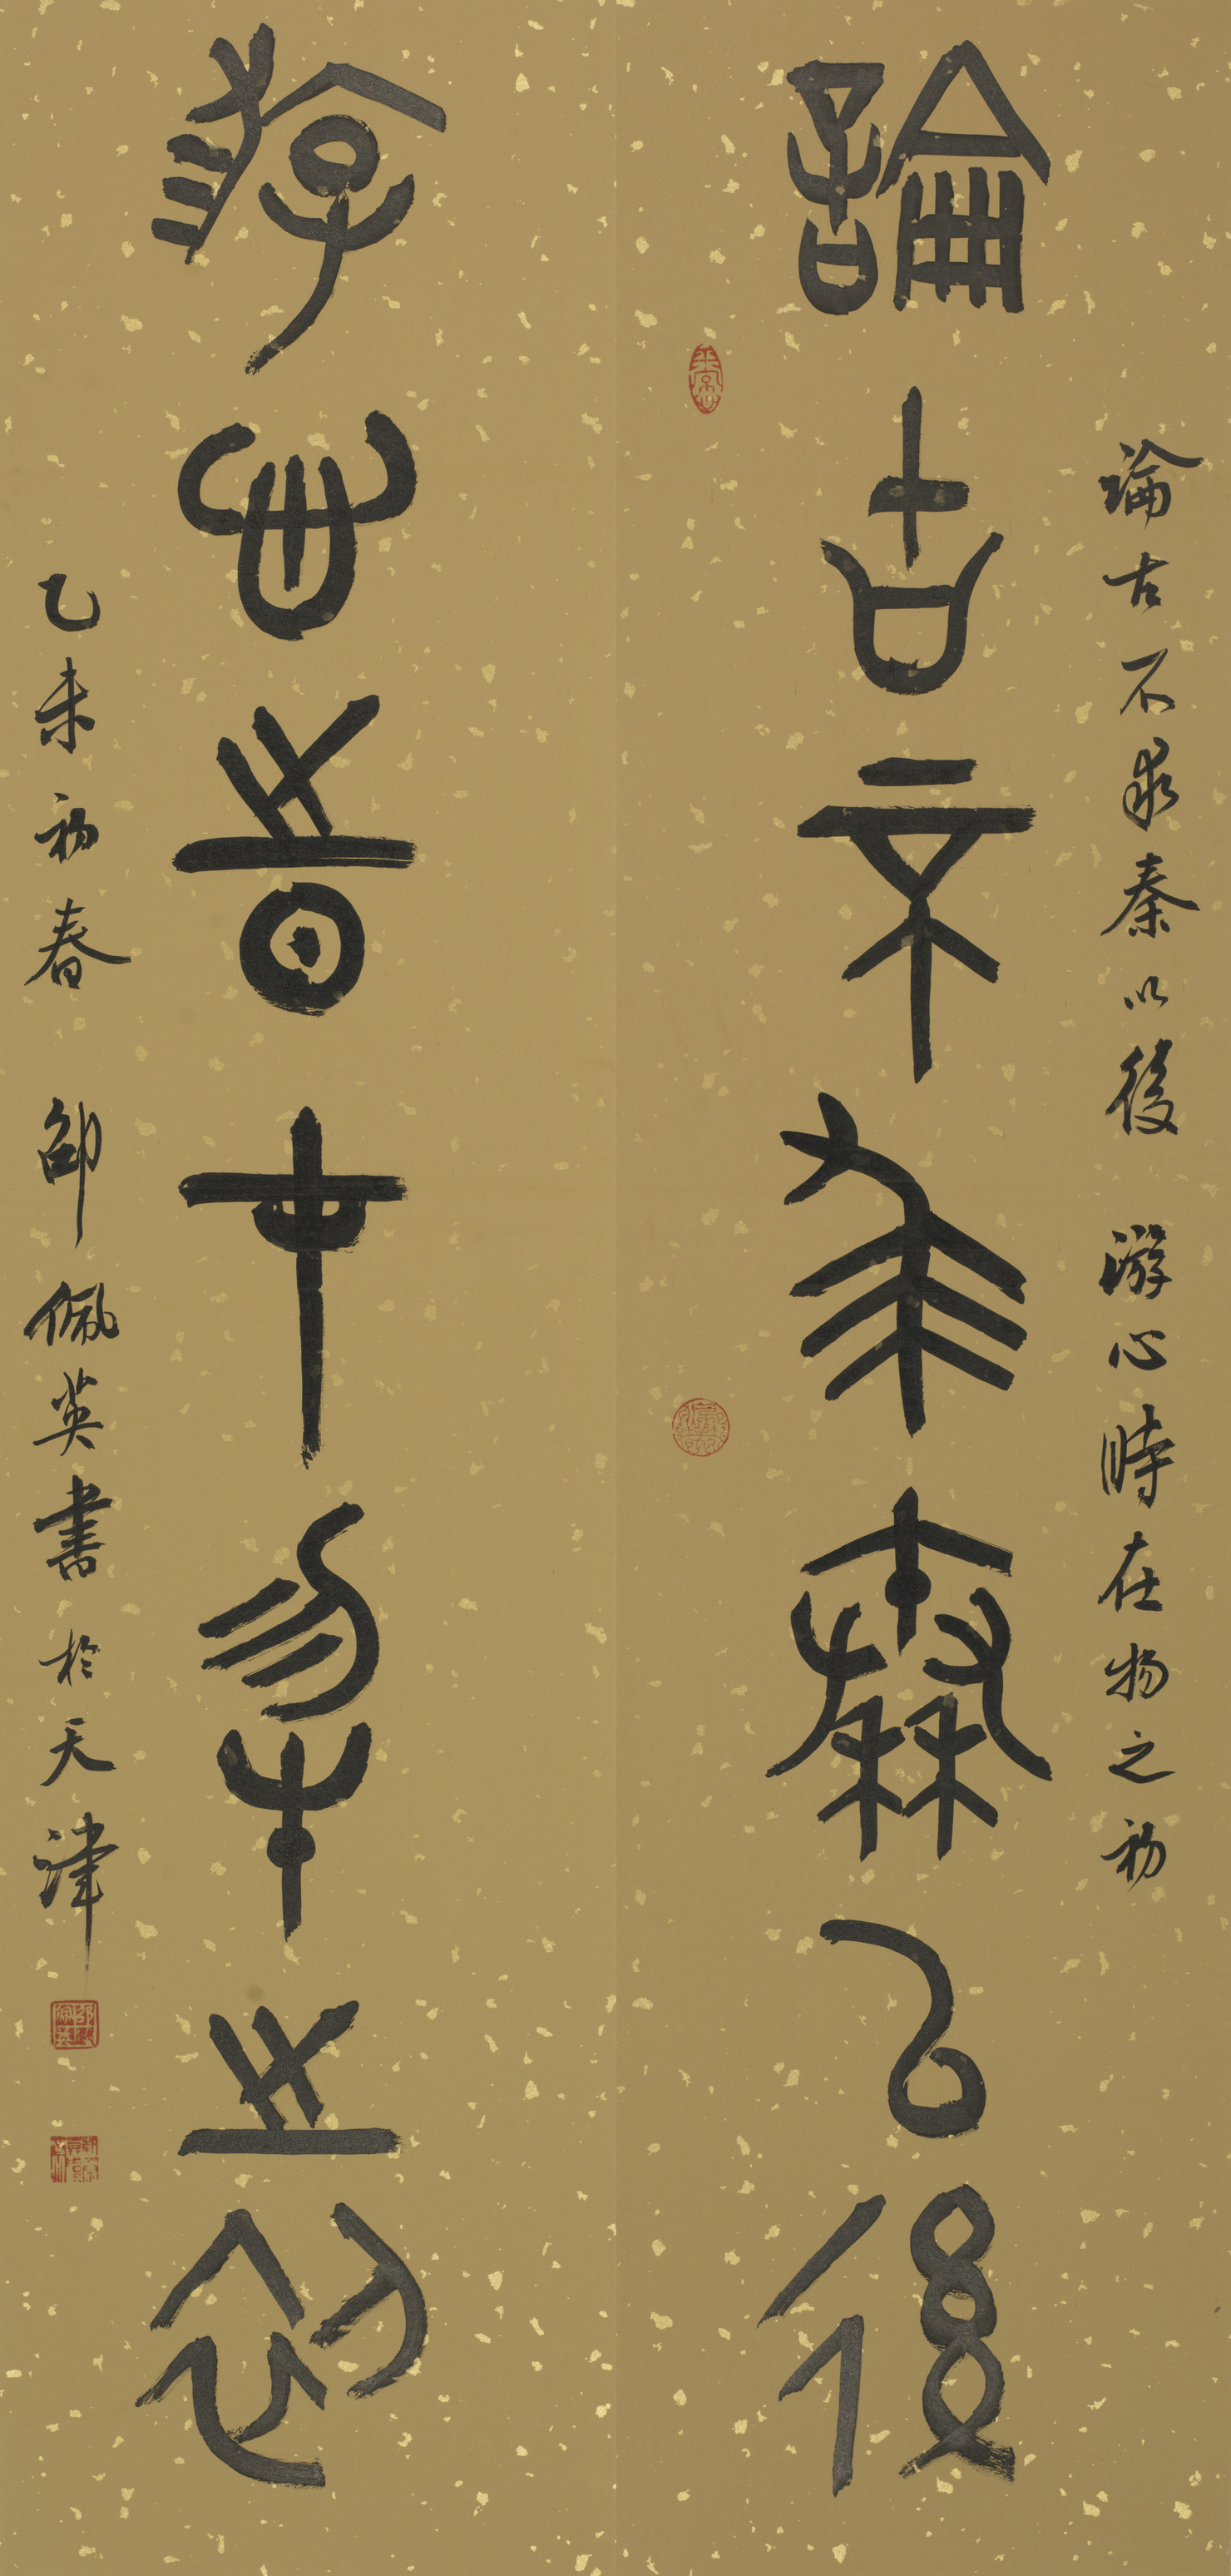 論古不求秦以後 游心時在物之初
論古不求秦㠯後
游心時在物之初
乙未初春 邵佩英書於天津
平常心
邵佩英